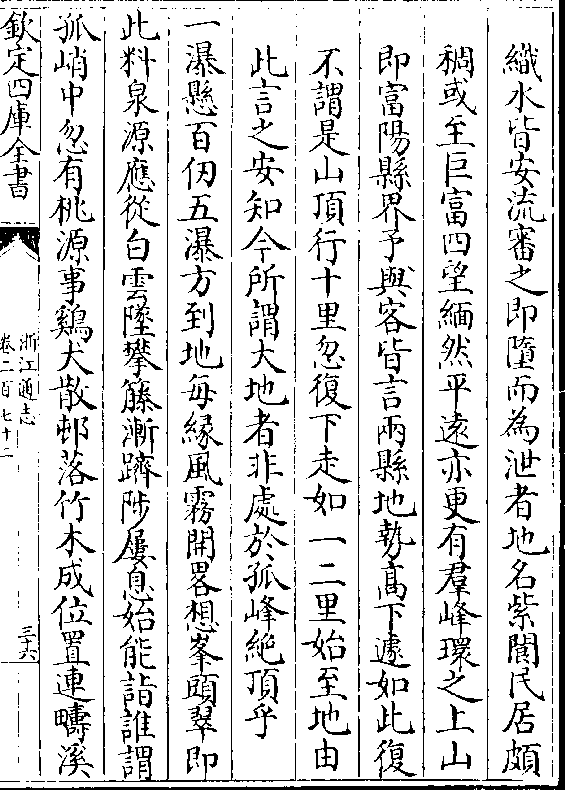 織水皆安流審之即墮而為泄者地名紫閬民居頗
稠或至巨富四望緬然平遠亦更有羣峰環之上山
即富陽縣界予與客皆言兩縣地勢髙下遽如此復
不謂是山頂行十里忽復下走如一二里始至地由
此言之安知今所謂大地者非處於孤峰絶頂乎
一瀑懸百仞五瀑方到地每縁風霧開畧想峯頭翠即
此料泉源應從白雲墜攀籐漸躋陟屢息始能詣誰謂
孤峭中忽有桃源事鷄犬散邨落竹木成位置連疇溪
欽定四庫全書
浙江通志
卷二百七十二
三十六